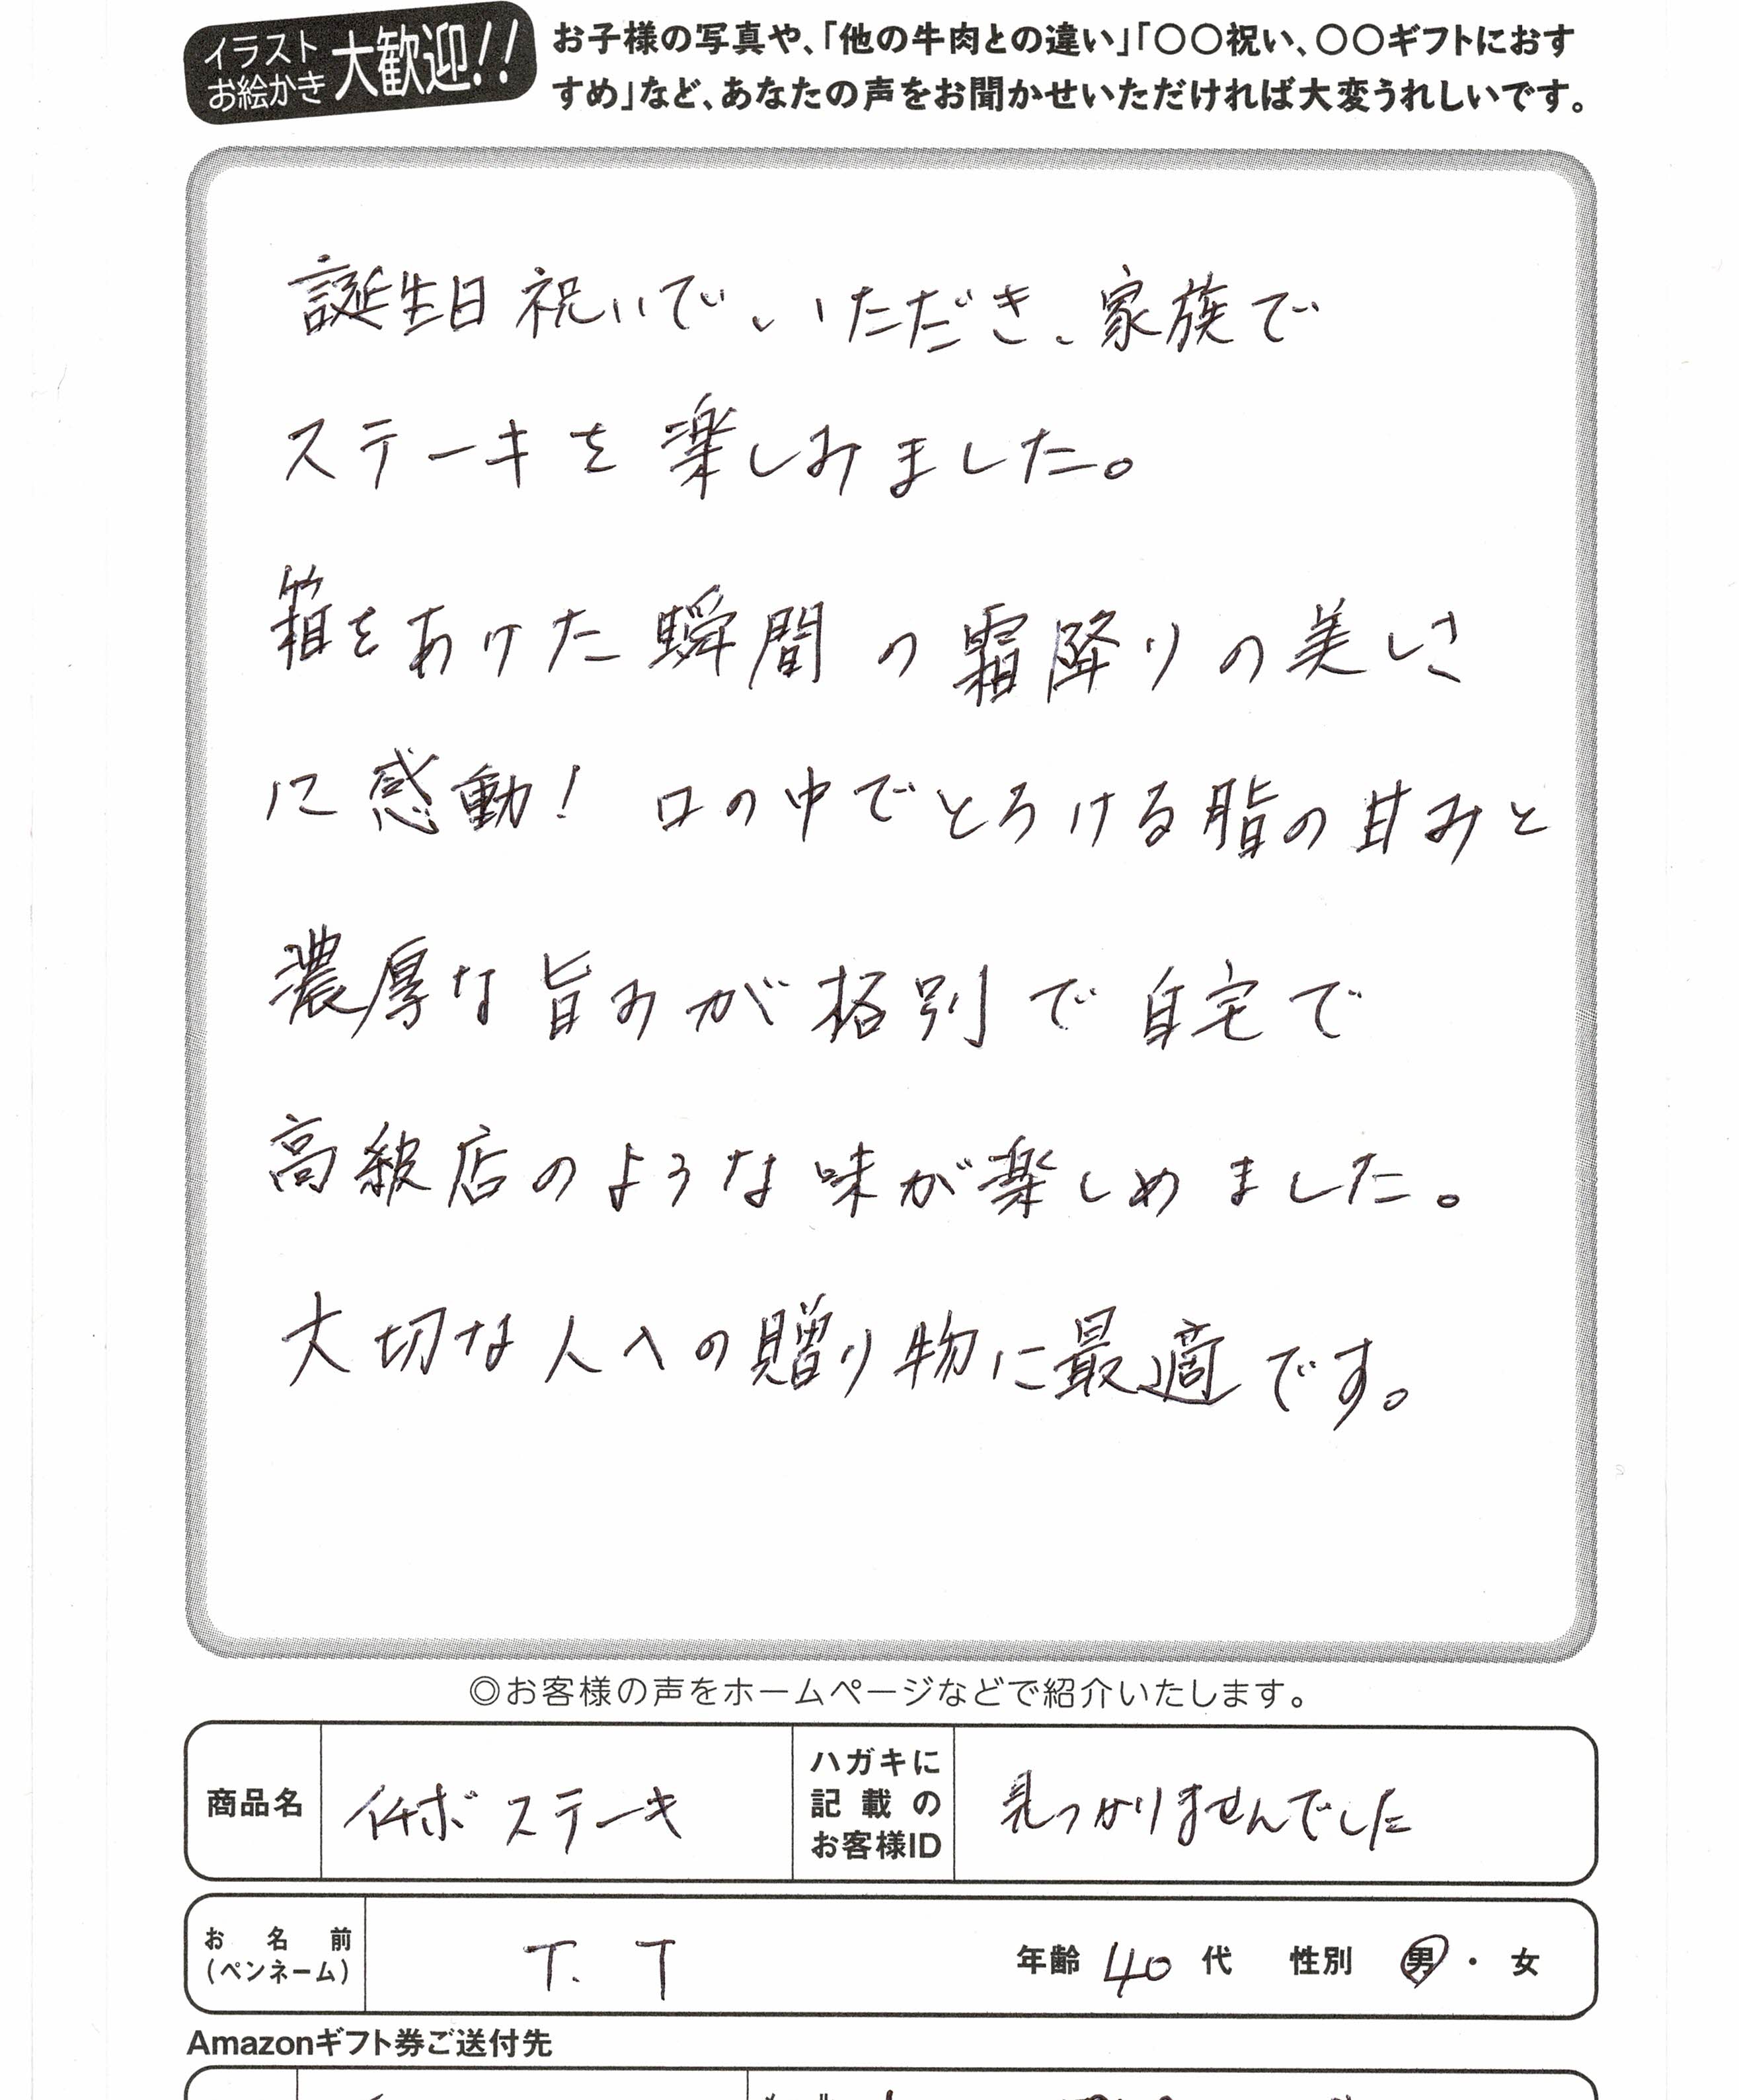 イラスト
お絵かき
大歓迎!!
お子様の写真や、「他の牛肉との違い」「〇〇祝い、〇〇ギフトにおす
すめ」など、あなたの声をお聞かせいただければ大変うれしいです。
誕生日祝いで、いただき、家族で
ステーキを楽しみました。
箱をあけた瞬間の霜降りの美しさ
に感動! 口の中でとろける脂の甘みと
濃厚な旨みが格別で自宅で
高級店のような味が楽しめました。
大切な人への贈り物に最適です。
◎お客様の声をホームページなどで紹介いたします。
商品名 イチボステーキ
ハガキに
記載の
お客様ID
見つかりませんでした
お名前
(ペンネーム)
T. T 年齢 40 代 性別 男・女
Amazonギフト券ご送付先